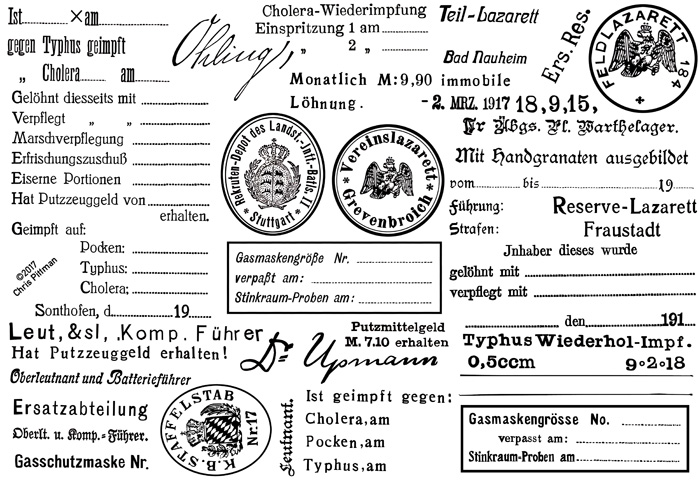 Ist ............ ×am............
gegen Typhus geimpft
„ Cholera............ am............
Gelöhnt diesseits mit ............
Verpflegt „ „ ............
Marschverpflegung ............
Erfrischungszuschuß ............
Eiserne Portionen ............
Hat Putzzeuggeld von ............
erhalten.
Geimpft auf:
Pocken: ............
Typhus: ............
Cholera; ............
Sonthofen, d............ 19............
©2017
Chris Pittman
Cholera-Wiederimpfung
Einspritzung 1 am ............
„ 2 „ ............
Monatlich M:9,90
Löhnung.
Teil-Lazarett
Bad Nauheim
immobile
-2. MRZ. 1917
18,9,15,
Ers. Res.
FELDLAZARETT 184
Tr Übgs. Pl. Warthelager.
Mit Handgranaten ausgebildet
vom............ bis ............ 19 ......
Führung:
Strafen:
Reserve-Lazarett
Fraustadt
Jnhaber dieses wurde
gelöhnt mit ............
verpflegt mit ............
............ den ............ 191......
Rekruten-Depot des Landst.-Inft.-Batls. II
* Stuttgart *
Vereinslazarett
* Grevenbroich *
Gasmaskengröße Nr. ............
verpaßt am: ............
Stinkraum-Proben am: ............
Leut, &sl, ,Komp. Führer
Hat Putzzeuggeld erhalten!
Oberleutnant und Batterieführer
Ersatzabteilung
Oberlt. u. Komp.-Führer.
Gasschutzmaske Nr.
K.B. STAFFELSTAB Nr. 17
Dr. Upmann
Putzmittelgeld
M. 7.10 erhalten
Leutnant.
Ist geimpft gegen:
Cholera, am
Pocken, am
Typhus, am
Typhus Wiederhol-Impf.
0,5ccm 9∘2∘18
Gasmaskengrösse No. ............
verpasst am: ............
Stinkraum-Proben am ............